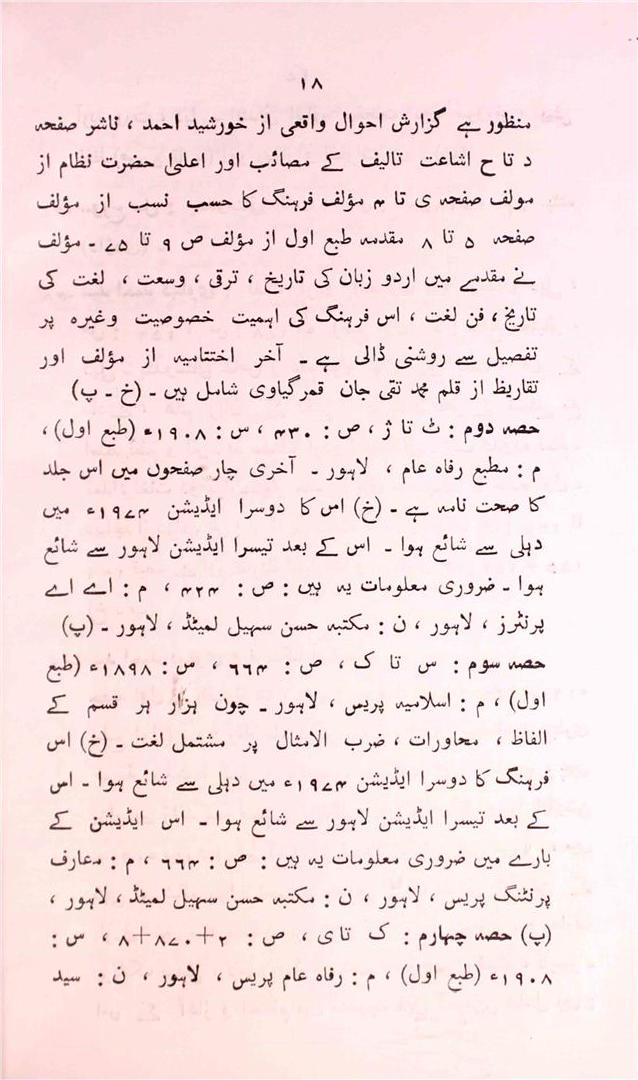 ۱۸
منظور ہے گزارش احوال واقعی از خورشید احمد ، ناشر صفحہ
د تا ح اشاعت تالیف کے مصائب اور اعلیٰ حضرت نظام از
مولف صفحہ ی تا ۴ مؤلف فرہنگ کا حسب نسب از مؤلف
صفحہ ۵ تا ۸ مقدمہ طبع اول از مؤلف ص ۹ تا ۷۵ ـ مؤلف
نے مقدمے میں اردو زبان کی تاریخ ، ترقی ، وسعت ، لغت کی
تاریخ ، فن لغت ، اس فرہنگ کی اہمیت خصوصیت وغیرہ پر
تفصیل سے روشنی ڈالی ہے ـ آخر اختتامیہ از مؤلف اور
تقاریظ از قلم محمد تقی جان قمرگیاوی شامل ہیں ـ (خ ـ پ)
حصہ دوم : ث تا ژ ، ص : ۴۳۰ ، س : ۱۹۰۸ء (طبع اول) ،
م : مطبع رفاہ عام ، لاہور ـ آخری چار صفحوں میں اس جلد
کا صحت نامہ ہے ـ (خ) اس کا دوسرا ایڈیشن ۱۹۷۴ء میں
دہلی سے شائع ہوا ـ اس کے بعد تیسرا ایڈیشن لاہور سے شائع
ہوا ـ ضروری معلومات یہ ہیں : ص : ۴۲۴ ، م : اے اے
پرنٹرز ، لاہور ، ن : مکتبہ حسن سہیل لمیٹڈ ، لاہور ـ (پ)
حصہ سوم : س تا ک ، ص : ۶۶۴ ، س : ۱۸۹۸ء (طبع
اول) ، م : اسلامیہ پریس ، لاہور ـ چون ہزار ہر قسم کے
الفاظ ، محاورات ، ضرب الامثال پر مشتمل لغت ـ (خ) اس
فرہنگ کا دوسرا ایڈیشن ۱۹۷۴ء میں دہلی سے شائع ہوا ـ اس
کے بعد تیسرا ایڈیشن لاہور سے شائع ہوا ـ اس ایڈیشن کے
بارے میں ضروری معلومات یہ ہیں : ص : ۶۶۴ ، م : معارف
پرنٹنگ پریس ، لاہور ، ن : مکتبہ حسن سہیل لمیٹڈ ، لاہور ،
(پ) حصہ چہارم : ک تا ی ، ص : ۲+۸۷۰+۸ ، س :
۱۹۰۸ء (طبع اول) ، م : رفاہ عام پریس ، لاہور ، ن : سید